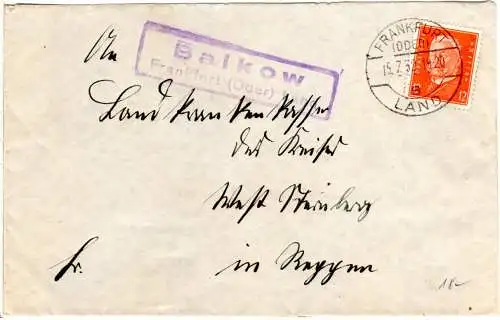 An
Balkow
Frankfurt (Oder) Land
FRANKFURT
(ODER)
15.7.32
LAND
12
Landkrankenkasse
des Kreises
West Sternberg
Fr. in Reppen
18-